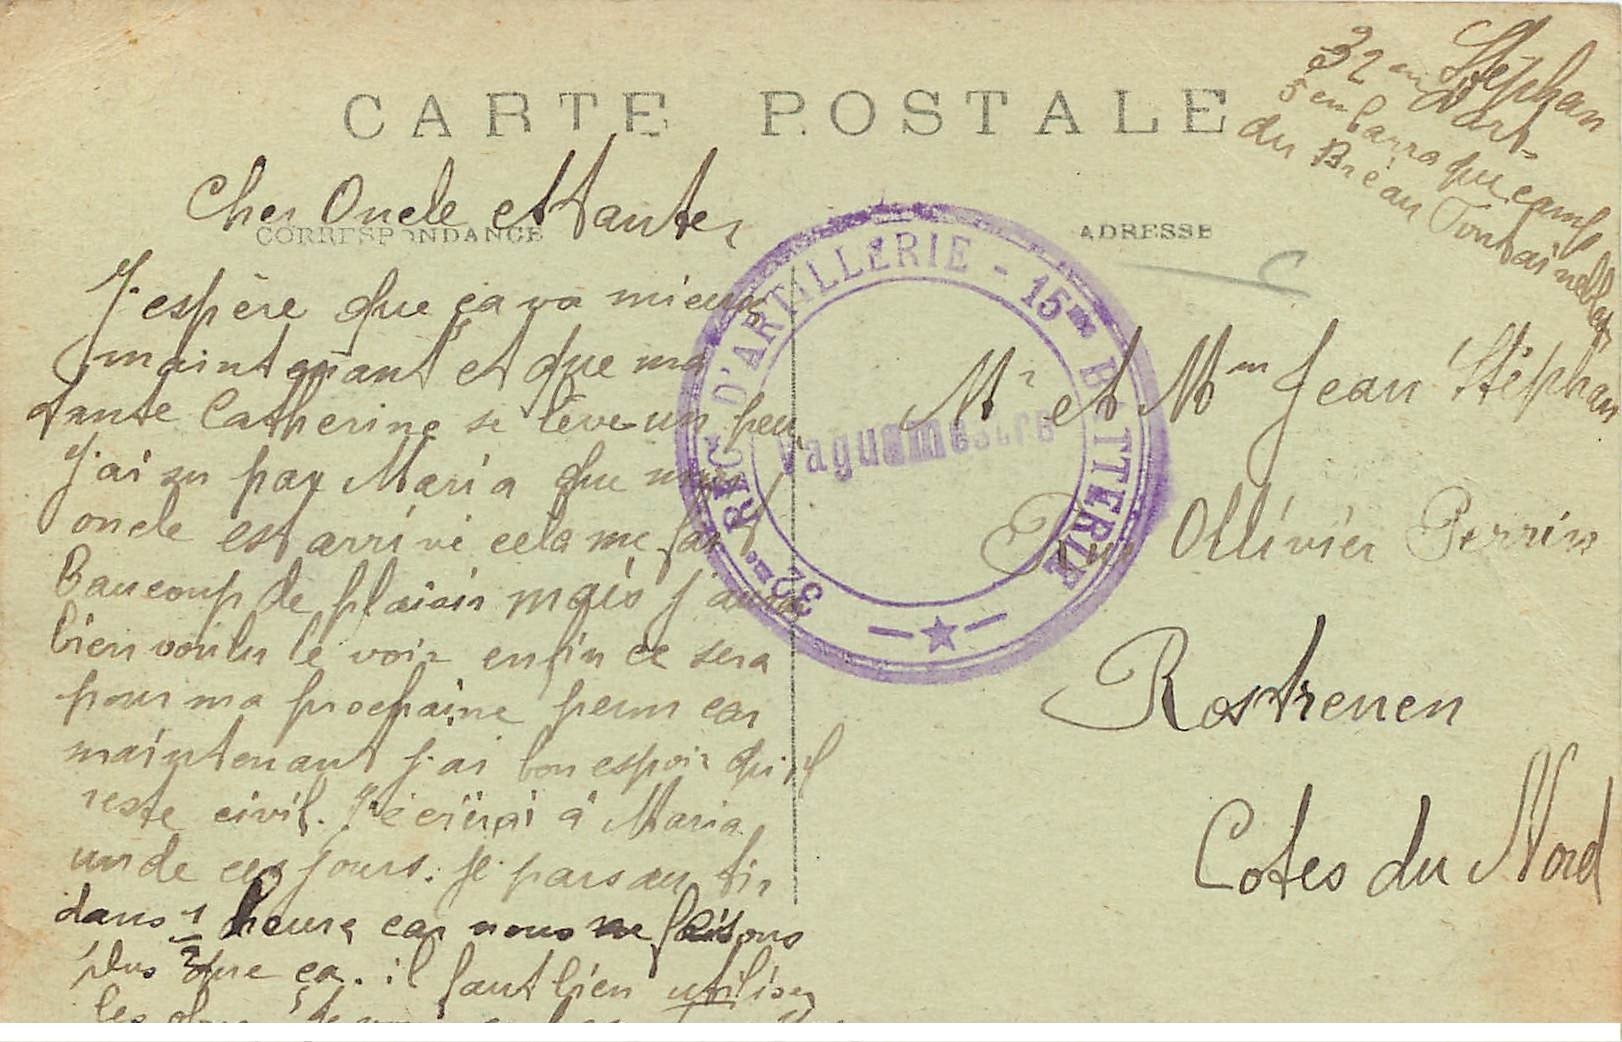 CARTE POSTALE
Stéphan
32em d'art-
5em barraque camp
du Bréau Fontainebleau
CORRESPONDANCE
ADRESSE
Cher Oncle et tante
J'espère que ça va mieux
maintenant et que ma
tante Catherine se lève un peu
J'ai su par Maria que mon
oncle est arrivé cela me fait
Baucoup de plaisir mais j'aurai
bien voulu le voir enfin ce sera
pour ma prochaine perm car
maintenant j'ai bon espoir qu'il
reste civil. J'écrirai à Maria
un de ces jours. Je pars au tir
dans 1/2 heure car nous ne faisons
plus que ça. il faut bien utiliser
les obus
32me REG. D'ARTILLERIE - 15me BATTERIE
Vaguemestre
Mr et Mm Jean Stéphan
Rue Ollivier Perrin
Rostrenen
Cotes du Nord